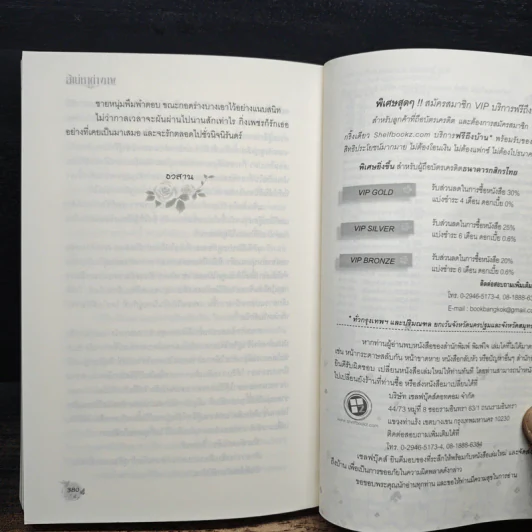 ชายหนุ่มพึมพำตอบ ขณะกอดร่างบางเอาไว้อย่างแนบสนิท
ไม่ว่ากาลเวลาจะผันผ่านไปนานสักเท่าไร กิ่งเพชรก็รักเธอ
อย่างที่เคยเป็นมาเสมอ และจะรักตลอดไปชั่วนิจนิรันดร์
อวสาน
พิเศษสุดๆ !! สมัครสมาชิก VIP บริการฟรีถึง
สำหรับลูกค้าที่ถือบัตรเครดิต และต้องการสมัครสมาชิก
Shelfbookz.com บริการฟรีถึงบ้าน* พร้อมรับของ
สิทธิประโยชน์มากมาย ไม่ต้องโอนเงิน ไม่ต้องแฟกซ์ ไม่ต้องไป
พิเศษยิ่งขึ้น สำหรับผู้ถือบัตรเครดิตธนาคารกสิกรไทย
VIP GOLD
รับส่วนลดในการซื้อหนังสือ 30%
แบ่งชำระ 4 เดือน ดอกเบี้ย 0%
VIP SILVER
รับส่วนลดในการซื้อหนังสือ 25%
แบ่งชำระ 6 เดือน ดอกเบี้ย 0.8%
VIP BRONZE
รับส่วนลดในการซื้อหนังสือ 20%
แบ่งชำระ 6 เดือน ดอกเบี้ย 0.8%
ติดต่อสอบถามเพิ่มเติม
โทร. 0-2946-5173-4,
E-mail : bookbangkok@gmail.co
* ทั่วกรุงเทพฯ และปริมณฑล ยกเว้นจังหวัดนครปฐมและจังหวัดสมุทร
หากท่านผู้อ่านพบหนังสือของสำนักพิมพ์ พิมพ์ใจ เล่มใดที่ไม่ได้
เช่น หน้ากระดาษสลับกัน หน้าขาดหาย หนังสือกลับหัว หรือปัญหาอื่นๆ สำนัก
ยินดีรับผิดชอบ เปลี่ยนหนังสือเล่มใหม่ให้ท่านทันที โดยท่านสามารถนำหนัง
ไปเปลี่ยนยังร้านที่ท่านซื้อ หรือส่งหนังสือมาเปลี่ยนได้ที่
บริษัท เชลฟ์บุ๊คส์ดอทคอม จำกัด
44/73 หมู่ที่ 8 ซอยรามอินทรา 63/1 ถนนรามอินทรา
แขวงท่าแร้ง เขตบางเขน กรุงเทพมหานคร 10230
ติดต่อสอบถามเพิ่มเติมได้ที่
โทร. 0-2946-5173-4,
เชลฟ์บุ๊คส์ ยินดีมอบของที่ระลึกให้พร้อมกับหนังสือเล่มใหม่ และจัดส่ง
ถึงบ้าน เพื่อเป็นการขออภัยในความผิดพลาดดังกล่าว
ขอขอบพระคุณนักอ่านทุกท่าน และขอให้ท่านมีความสุขในการอ่าน